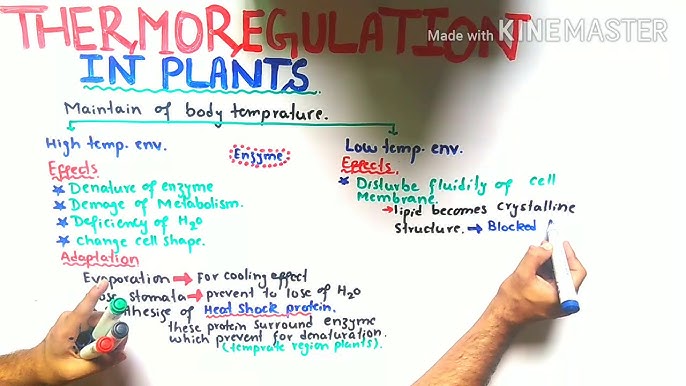 THERMOREGULATION
Made with KINEMASTER
IN PLANTS
Maintain of body temprature.
High temp. env.
Effects
★ Denature of enzyme
★ Demage of Metabolism.
★ Deficiency of H2O
★ change cell shape.
Adaptation
Evaporation → For cooling effect
stomata → prevent to lose of H2O
of Heat Shock protein.
these protein surround enzyme
which prevent for denaturation.
(temprate region plants).
Enzyme
Low temp. env.
Effects.
★ Disturbe fluidity of cell
Membrane.
→ lipid becomes crystalline
structure. → Blocked